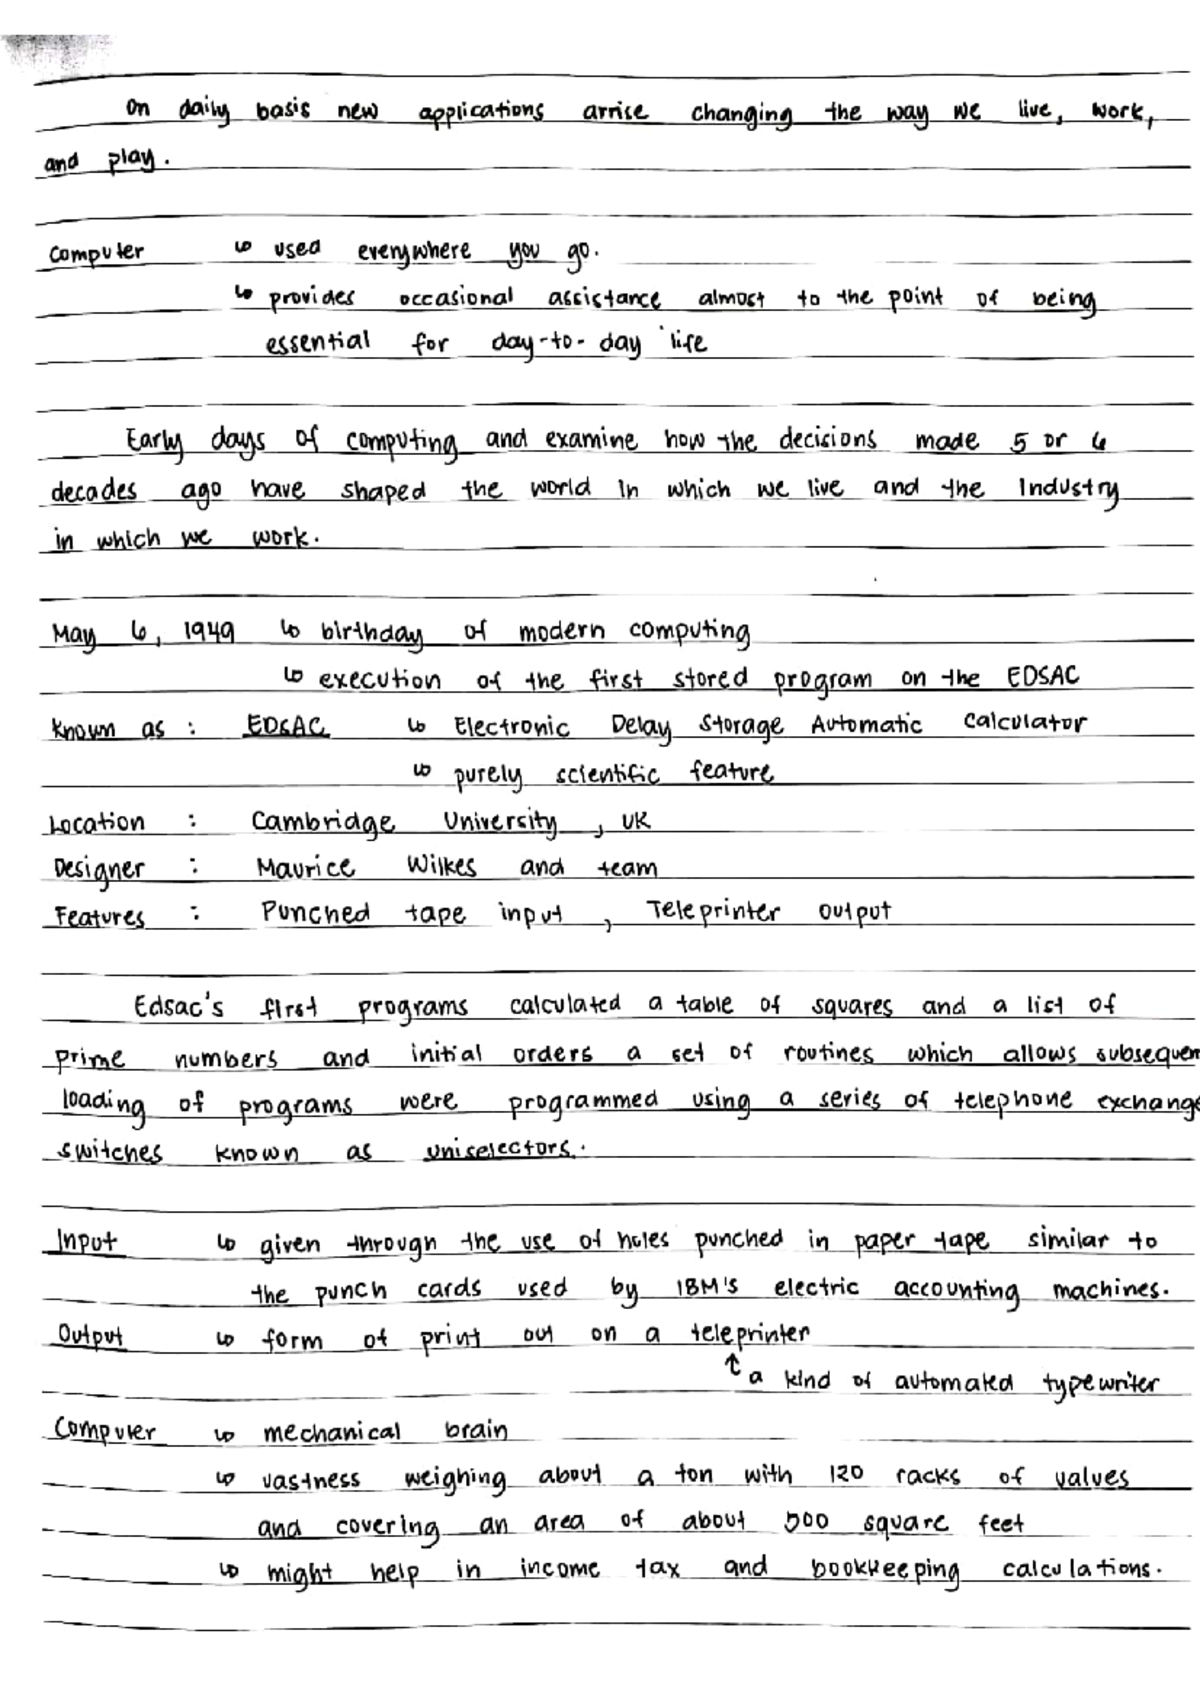 On daily basis new applications arrise changing the way we live, work,
and play.
Computer ↳ used everywhere you go.
↳ provides occasional assistance almost to the point of being
essential for day-to-day life
Early days of computing and examine how the decisions made 5 or 6
decades ago have shaped the world in which we live and the Industry
in which we work.
May 6, 1949 ↳ birthday of modern computing
↳ execution of the first stored program on the EDSAC
Known as : EDSAC ↳ Electronic Delay Storage Automatic Calculator
↳ purely scientific feature
Location : Cambridge University, UK
Designer : Maurice Wilkes and team
Features : Punched tape input, Teleprinter output
Edsac's first programs calculated a table of squares and a list of
prime numbers and initial orders a set of routines which allows subsequen
loading of programs were programmed using a series of telephone exchange
switches known as uniselectors.
Input ↳ given through the use of holes punched in paper tape similar to
the punch cards used by IBM's electric accounting machines.
Output ↳ form of print out on a teleprinter
↑ a kind of automated typewriter
Computer ↳ mechanical brain
↳ vastness weighing about a ton with 120 racks of values
and covering an area of about 500 square feet
↳ might help in income tax and bookkeeping calculations.